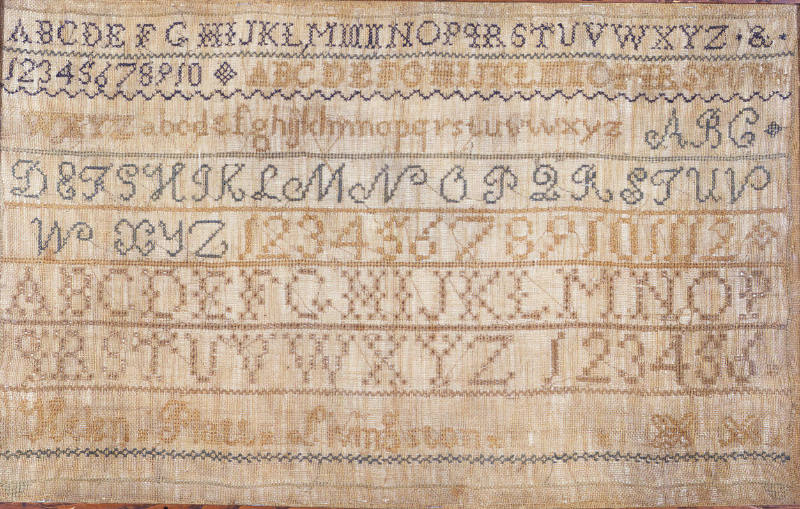 ABCDEFGHIJKLMNOPQRSTUVWXYZ·&·
12345678910 ABCDEFGHIJKL
WXYZabcdefghijklmnopqrstuvwxyz ABC
DEFGHIJKLMNOPQRSTUV
WXYZ 123456789101112
ABCDEFGHIJKLMNOP
QRSTUVWXYZ 123456
Livingston